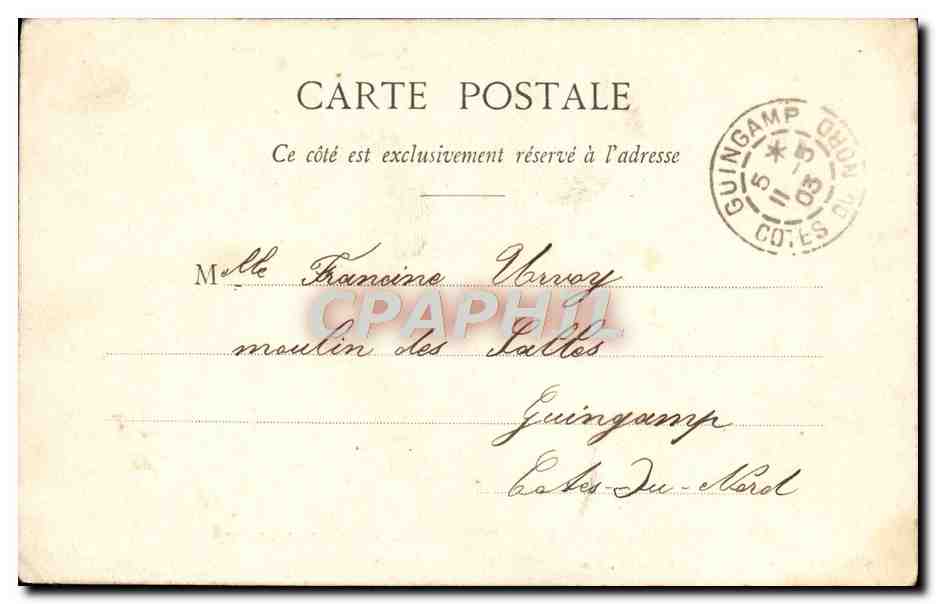 CARTE POSTALE
Ce côté est exclusivement réservé à l'adresse
GUINGAMP COTES DU NORD
5 * -5
11 03
Melle Francine Urvoy
CPAPHIL
moulin des Salles
Guingamp
Cotes-Du-Nord